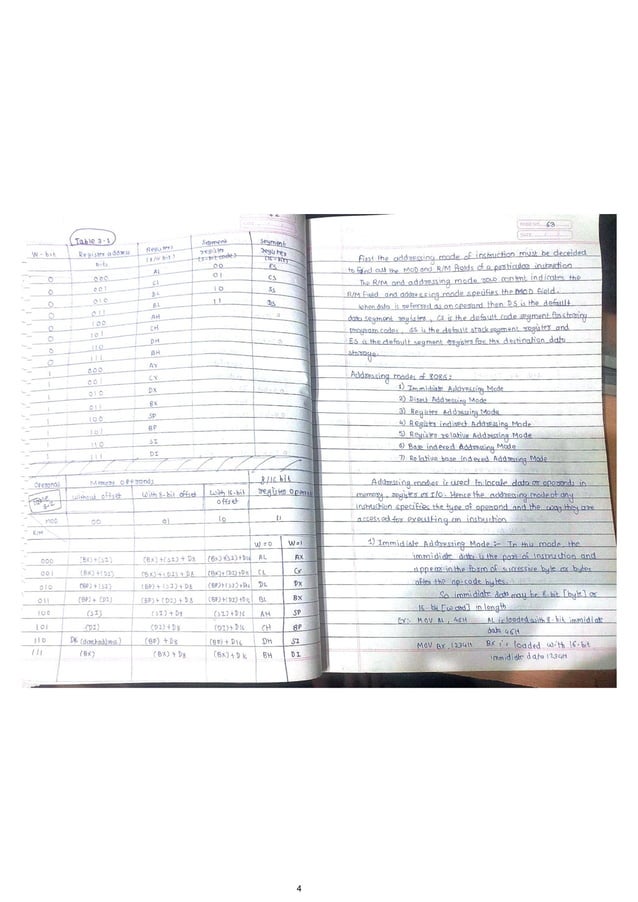 Table 3.1
W-bit Register address bits Registers (8/16 bit) Segment register (2-bit code) Segment register (16-bit)
0 000 AL 00 ES
0 001 CL 01 CS
0 010 DL 10 SS
0 011 BL 11 DS
0 100 AH
0 101 CH
0 110 DH
0 111 BH
1 000 AX
1 001 CX
1 010 DX
1 011 BX
1 100 SP
1 101 BP
1 110 SI
1 111 DI
Operands Memory Operands 8/16 bit
Table 3.2 Without offset With 8-bit offset With 16-bit offset register Operands
MOD 00 01 10 11
R/M
W=0 W=1
000 (BX)+(SI) (BX)+(SI)+D8 (BX)+(SI)+D16 AL AX
001 (BX)+(DI) (BX)+(DI)+D8 (BX)+(DI)+D16 CL CX
010 (BP)+(SI) (BP)+(SI)+D8 (BP)+(SI)+D16 DL DX
011 (BP)+(DI) (BP)+(DI)+D8 (BP)+(DI)+D16 BL BX
100 (SI) (SI)+D8 (SI)+D16 AH SP
101 (DI) (DI)+D8 (DI)+D16 CH BP
110 D16 (BP)+D8 (BP)+D16 DH SI
111 (BX) (BX)+D8 (BX)+D16 BH DI
63
First the addressing mode of instruction must be deceided
to find out the MOD and R/M Fields of a particular instruction
The R/M and addressing mode row content indicates the
R/M Field and addressing mode specifies the MOD field.
When data is referred as an operand then DS is the default
data segment register, CS is the default code segment for storing
program codes, SS is the default stack segment register and
ES is the default segment register for the destination data
storage.
Addressing modes of 8086:
1) Immidiate Addressing Mode
2) Direct Addressing Mode
3) Register Addressing Mode
4) Register indirect Addressing Mode
5) Register relative Addressing Mode
6) Base indexed Addressing Mode
7) Relative base indexed Addressing Mode
Addressing modes is used to locate data or operands in
memory, registers or I/O. Hence the addressing mode of any
instruction specifies the type of operand and the way they are
accessed for executing an instruction.
1) Immidiate Addressing Mode :- In this mode, the
immidiate data is the part of instruction and
appear in the form of successive byte or bytes
after the opcode bytes.
So immidiate data may be 8-bit [byte] or
16-bit [word] in length
Ex:- MOV AL, 46H AL is loaded with 8-bit immidiate
data 46H
MOV BX, 1234H BX is loaded with 16-bit
immidiate data 1234H
4